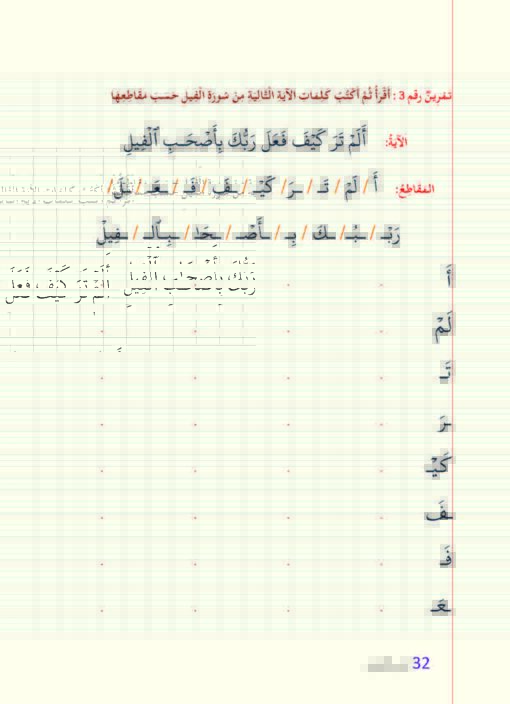 تمرين رقم 3 : أقْرَأُ ثُمَّ أَكْتُبُ كَلِمَاتِ الآيَةِ التَّالِيَةِ مِنْ سُورَةِ الْفِيلِ حَسَبَ مَقَاطِعِهَا
الآيَةُ: أَلَمْ تَرَ كَيْفَ فَعَلَ رَبُّكَ بِأَصْحَٰبِ ٱلْفِيلِ
المَقَاطِعُ: أَ / لَمْ / تَـ / ـرَ / كَيْـ / ـفَ / فَـ / ـعَـ / ـلَ /
رَبْـ / ـبُـ / ـكَ / بِـ / ـأَصْـ / ـحَٰـ / ـبِـٱلْـ / ـفِيلْ
أَ
لَمْ
تَـ
ـرَ
كَيْـ
ـفَ
فَـ
ـعَـ
32